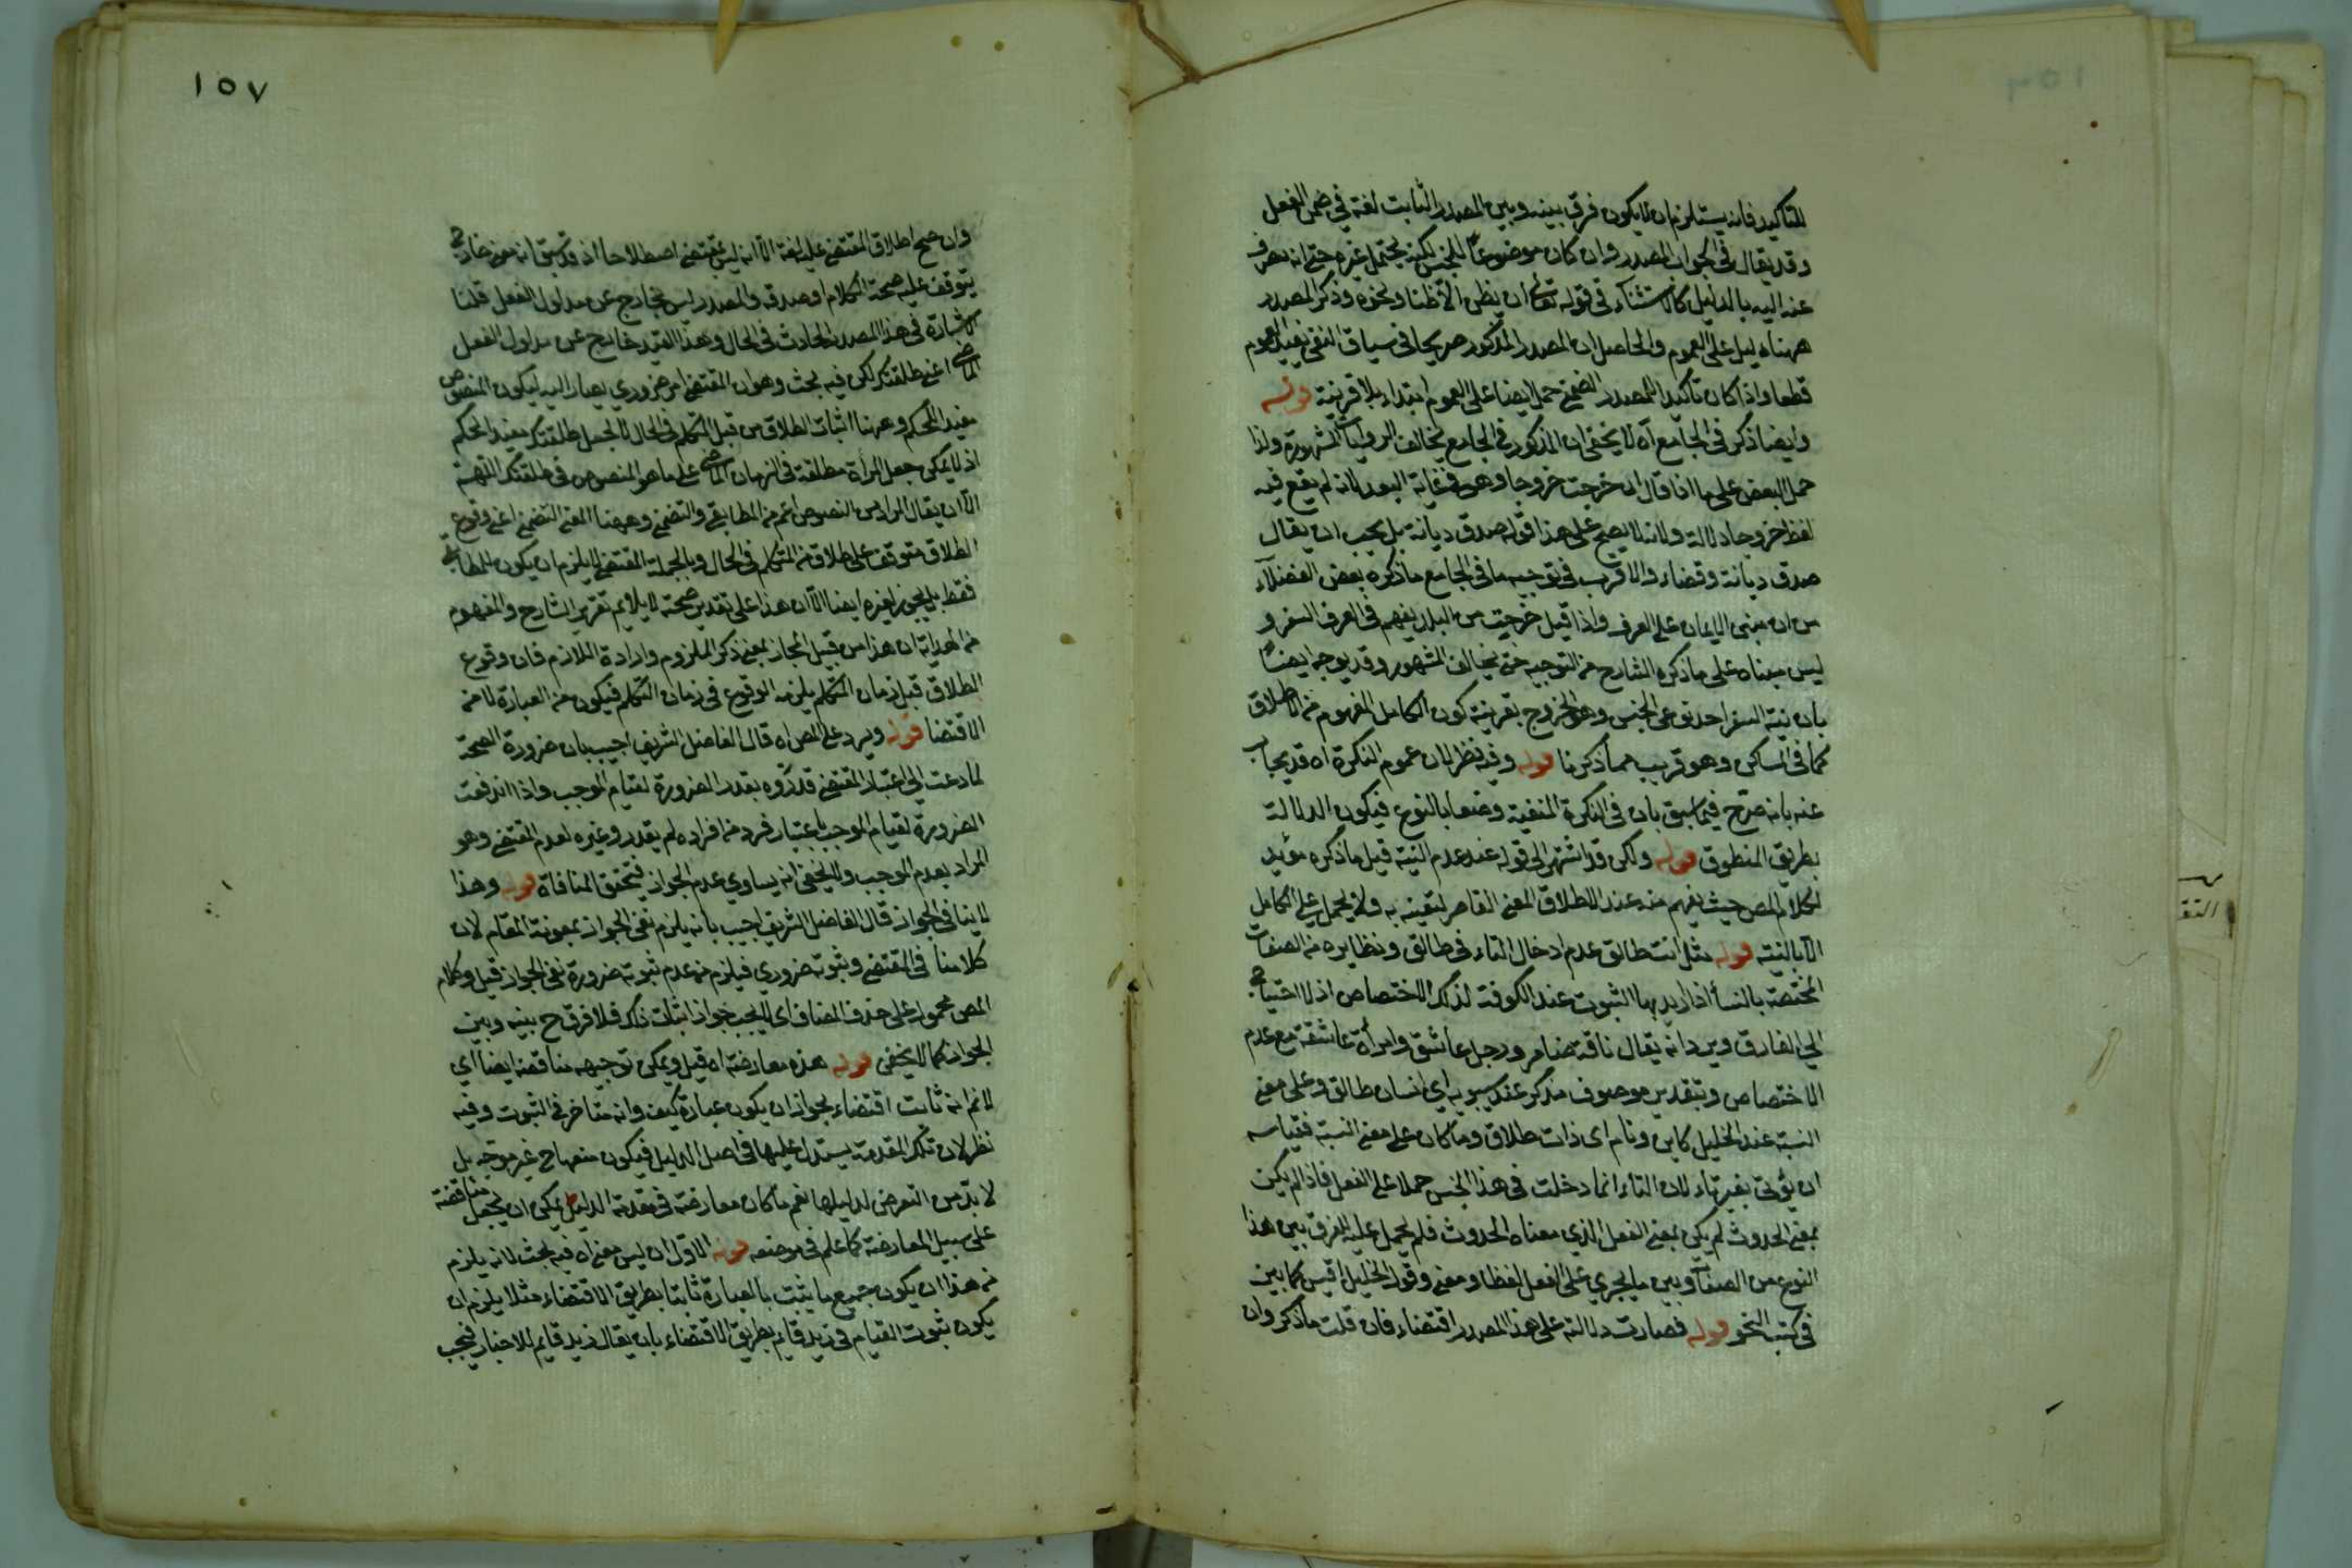 للتاكيد فانه يستلزم ان لا يكون فرق بينه وبين المصدر الثابت لغة في ضمن الفعل
وقد يقال في الجواب المصدر وان كان موضوعا للجنس لكنه يحتمل غيره حتى انه يصرف
عنه اليه بالدليل كالاستثناء في قوله تعالى ان نظن الا ظنا ونحوه وذكر المصدر
ههنا دليل على العموم والحاصل ان المصدر المذكور صريحا في سياق النفي يفيد العموم
قطعا واذا كان تاكيدا للمصدر الضمني حمل ايضا على العموم ابتداء بلا قرينة قوله
وايضا ذكر في الجامع اه لا يخفى ان المذكور في الجامع يخالف الروايات المشهورة ولذا
حمل البعض على ما اذا قال ان خرجت خروجا وهو في غاية البعد لانه لم يقع فيه
لفظ خروجا دلالة ولانه لا يصح على هذا قوله صدق ديانة بل يجب ان يقال
صدق ديانة وقضاء والاقرب في توجيه ما في الجامع ما ذكره بعض الفضلاء
من ان مبنى الايمان على العرف واذا قيل خرجت من البلد يفهم في العرف السفر و
ليس مبناه على ما ذكره الشارح من التوجيه حتى يخالف المشهور وقد يوجه ايضا
بان نية السفر احد نوعي الجنس وهو الخروج بقرينة كون الكامل المفهوم من الاطلاق
كما في المساكن وهو قريب مما ذكرنا قوله وفيه نظر لان عموم النكرة اه قد يجاب
عنه بانه صرح فيما سبق بان في النكرة المنفية وضعا بالنوع فيكون الدلالة
بطريق المنطوق قوله ولكن قد اشتهر الى قوله عند عدم النية قيل ما ذكره مؤيد
لكلام المص حيث يفهم منه عند الاطلاق المعنى القاصر لتيقنه به ولا يحمل على الكامل
الا بالنية قوله مثل انت طالق عدم ادخال التاء في طالق ونظايره من الصفات
المختصة بالنسأ اذا اريد بها الثبوت عند الكوفة لذلك الاختصاص اذ لا احتياج
الى الفارق ويرد انه يقال ناقة ضامر ورجل عاشق وامرأة عاشقة مع عدم
الاختصاص وبتقدير موصوف مذكر عند سيبويه اي انسان طالق وعلى معنى
النسبة عند الخليل كلابن وتامر اى ذات طلاق وما كان على معنى النسبة فقياسه
ان يؤتى بغير تاء لان التاء انما دخلت في هذا الجنس حملا على الفعل فاذا لم يكن
بمعنى الحدوث لم يكن بمعنى الفعل الذي معناه الحدوث فلم يحمل عليه للفرق بين هذا
النوع من الصفات وبين ما يجري على الفعل لفظا ومعنى وقول الخليل اقيس كما بين
في كتب النحو قوله فصارت دلالته على هذا المصدر اقتضاء فان قلت ما ذكر وان
١٥٧
وان صح اطلاق المقتضى عليه لغة الا انه ليس بمقتضى اصطلاحا اذ قد سبق انه معنى خارج
يتوقف عليه صحة الكلام او صدقه والمصدر ليس بخارج عن مدلول الفعل قلنا
الاشارة في هذا المصدر الحادث في الحال وهذا القيد خارج عن مدلول الفعل
الماضي اعني طلقتك لكن فيه بحث وهو ان المقتضى امر ضروري يصار اليه ليكون المنصوص
مفيد الحكم وههنا اثبات الطلاق من قبل المتكلم في الحال لا يجعل طلقتك مفيد الحكم
اذ لا يمكن جعل المرأة مطلقة في الزمان الماضي على ما هو المنصوص في طلقتك اللهم
الا ان يقال المراد من المنصوص اعم من المطابقي والتضمني وههنا المعنى التضمني اعني وقوع
الطلاق متوقف على طلاق من المتكلم في الحال وبالجملة المقتضى لا يلزم ان يكون للمطابقي
فقط بل يجوز لغيره ايضا الا ان هذا على تقدير صحته لا يلايم تقرير الشارح والمفهوم
من الهداية ان هذا من قبيل المجاز بمعنى ذكر الملزوم وارادة اللازم فان وقوع
الطلاق قبل زمان التكلم يلزمه الوقوع في زمان التكلم فيكون من العبارة لا من
الاقتضا قوله ويرد على المص اه قال الفاضل الشريف اجيب بان ضرورة الصحة
لما دعت الى اعتبار المقتضى قدروه بقدر الضرورة لقيام الموجب واذا اندفعت
الضرورة لقيام الموجب باعتبار فرد من افراده لم يقدر وغيره لعدم المقتضى وهو
المراد بعدم الموجب ولا يخفى انه يساوي عدم الجواز فيتحقق المنافاة قوله وهذا
لا ينافي الجواز قال الفاضل الشريف اجيب بانه يلزم نفي الجواز بمعونة المقام لان
كلامنا في المقتضى وثبوته ضروري فيلزم من عدم ثبوته ضرورة نفي الجواز قيل وكلام
المص محمول على حذف المضاف اى لا يجب جواز اثبات ذلك فلا فرق ح بينه وبين
الجواز كما لا يخفى قوله هذه معارضة اه قيل ويمكن توجيهه مناقضة ايضا اي
لا نم انه ثابت اقتضاء لجواز ان يكون عبارة كيف وانه متاخر في الثبوت وفيه
نظر لان تلك المقدمة يستدل عليها في اصل الدليل فيكون منعها ح غير موجه بل
لا بد من التعرض لدليلها نعم ما كان معارضة في مقدمة الدليل يمكن ان يجعل مناقضة
على سبيل المعارضة كما علم في موضعه قوله الاول ان ليس معناه فيه بحث لانه يلزم
من هذا ان يكون جميع ما يثبت بالعبارة ثابتا بطريق الاقتضاء مثلا يلزم ان
يكون ثبوت القيام في زيد قايم بطريق الاقتضاء بان يقال زيد قايم للاخبار فيجب